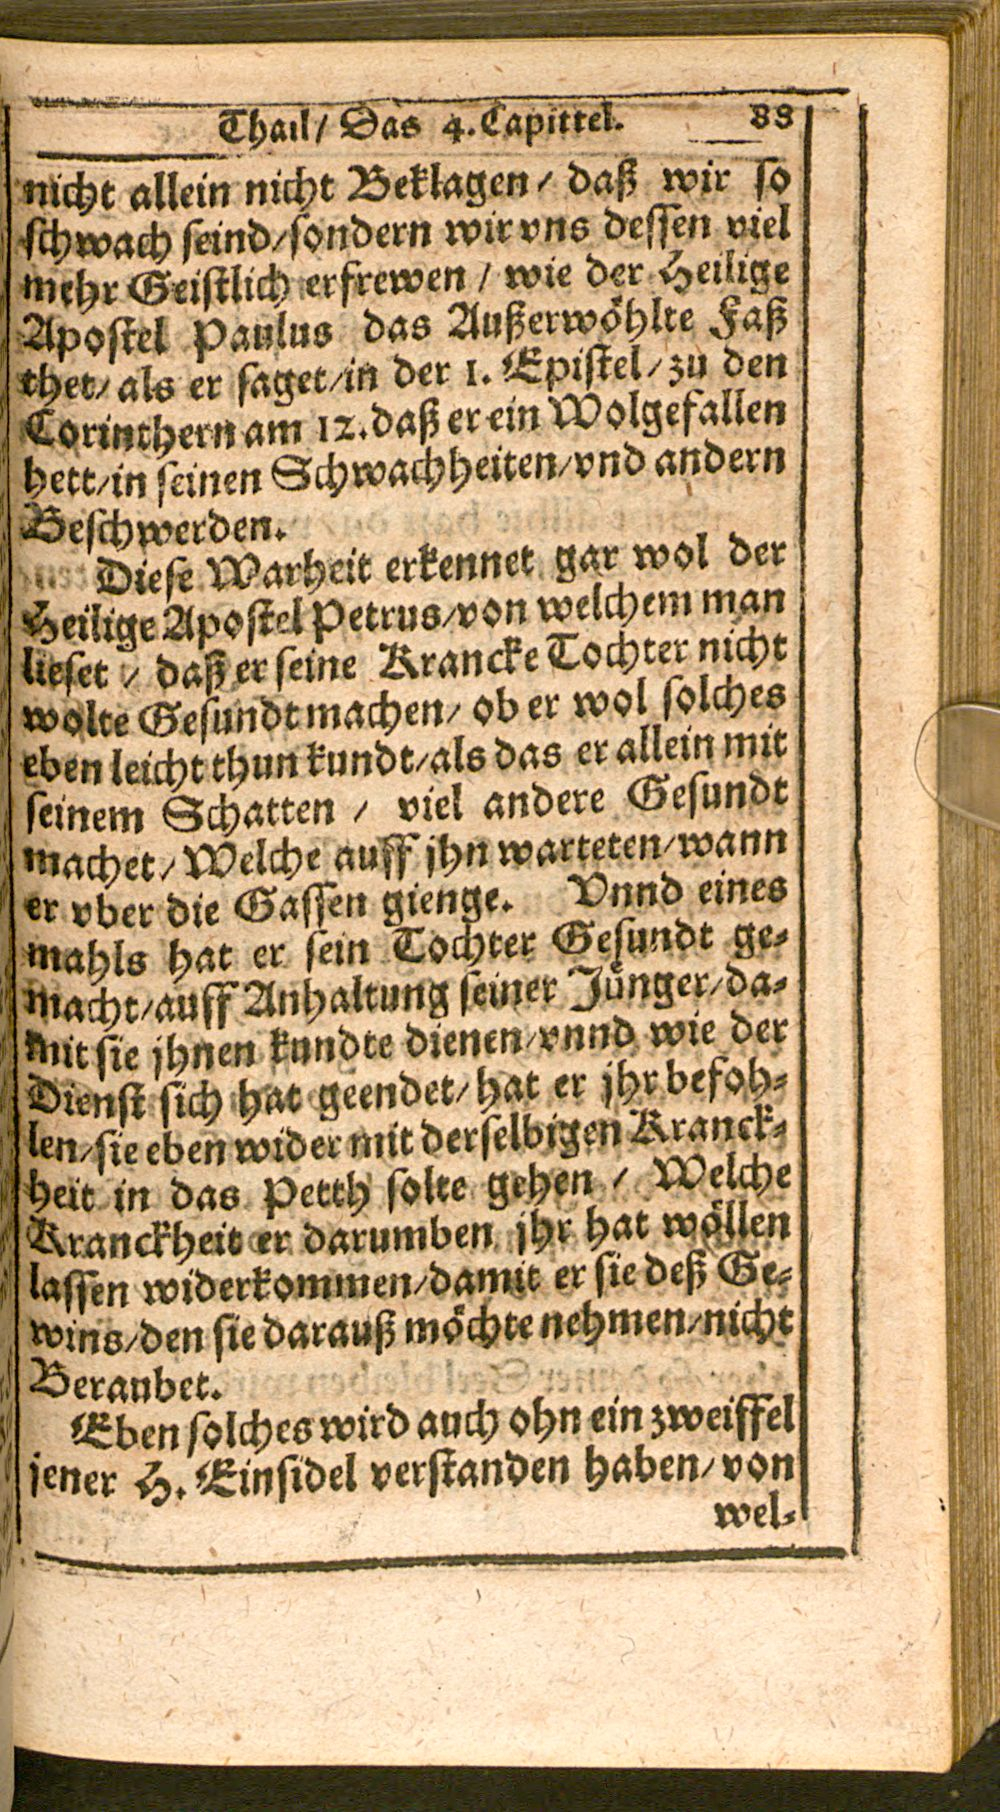 Thail/ Das 4. Capittel. 88
nicht allein nicht Beklagen/ daß wir so
schwach seind/sondern wir vns dessen viel
mehr Geistlich erfrewen / wie der Heilige
Apostel Paulus das Außerwöhlte Faß
thet/ als er saget/in der 1. Epistel/ zu den
Corinthern am 12. daß er ein Wolgefallen
hett/in seinen Schwachheiten/vnd andern
Beschwerden.
Diese Warheit erkennet gar wol der
Heilige Apostel Petrus/von welchem man
lieset / daß er seine Krancke Tochter nicht
wolte Gesundt machen/ ob er wol solches
eben leicht thun kundt/als das er allein mit
seinem Schatten / viel andere Gesundt
machet/ Welche auff jhn warteten/wann
er vber die Gassen gienge. Vnnd eines
mahls hat er sein Tochter Gesundt ge-
macht/auff Anhaltung seiner Jünger/da-
mit sie jhnen knndte dienen/vnnd wie der
Dienst sich hat geendet/ hat er jhr befoh-
len/sie eben wider mit derselbigen Kranck-
heit in das Petth solte gehen / Welche
Kranckheit er darumben jhr hat wöllen
lassen widerkommen/damit er sie deß Ge-
wins/den sie darauß möchte nehmen/nicht
Beraubet.
Eben solches wird auch ohn ein zweiffel
jener H. Einsidel verstanden haben/ von
wel-